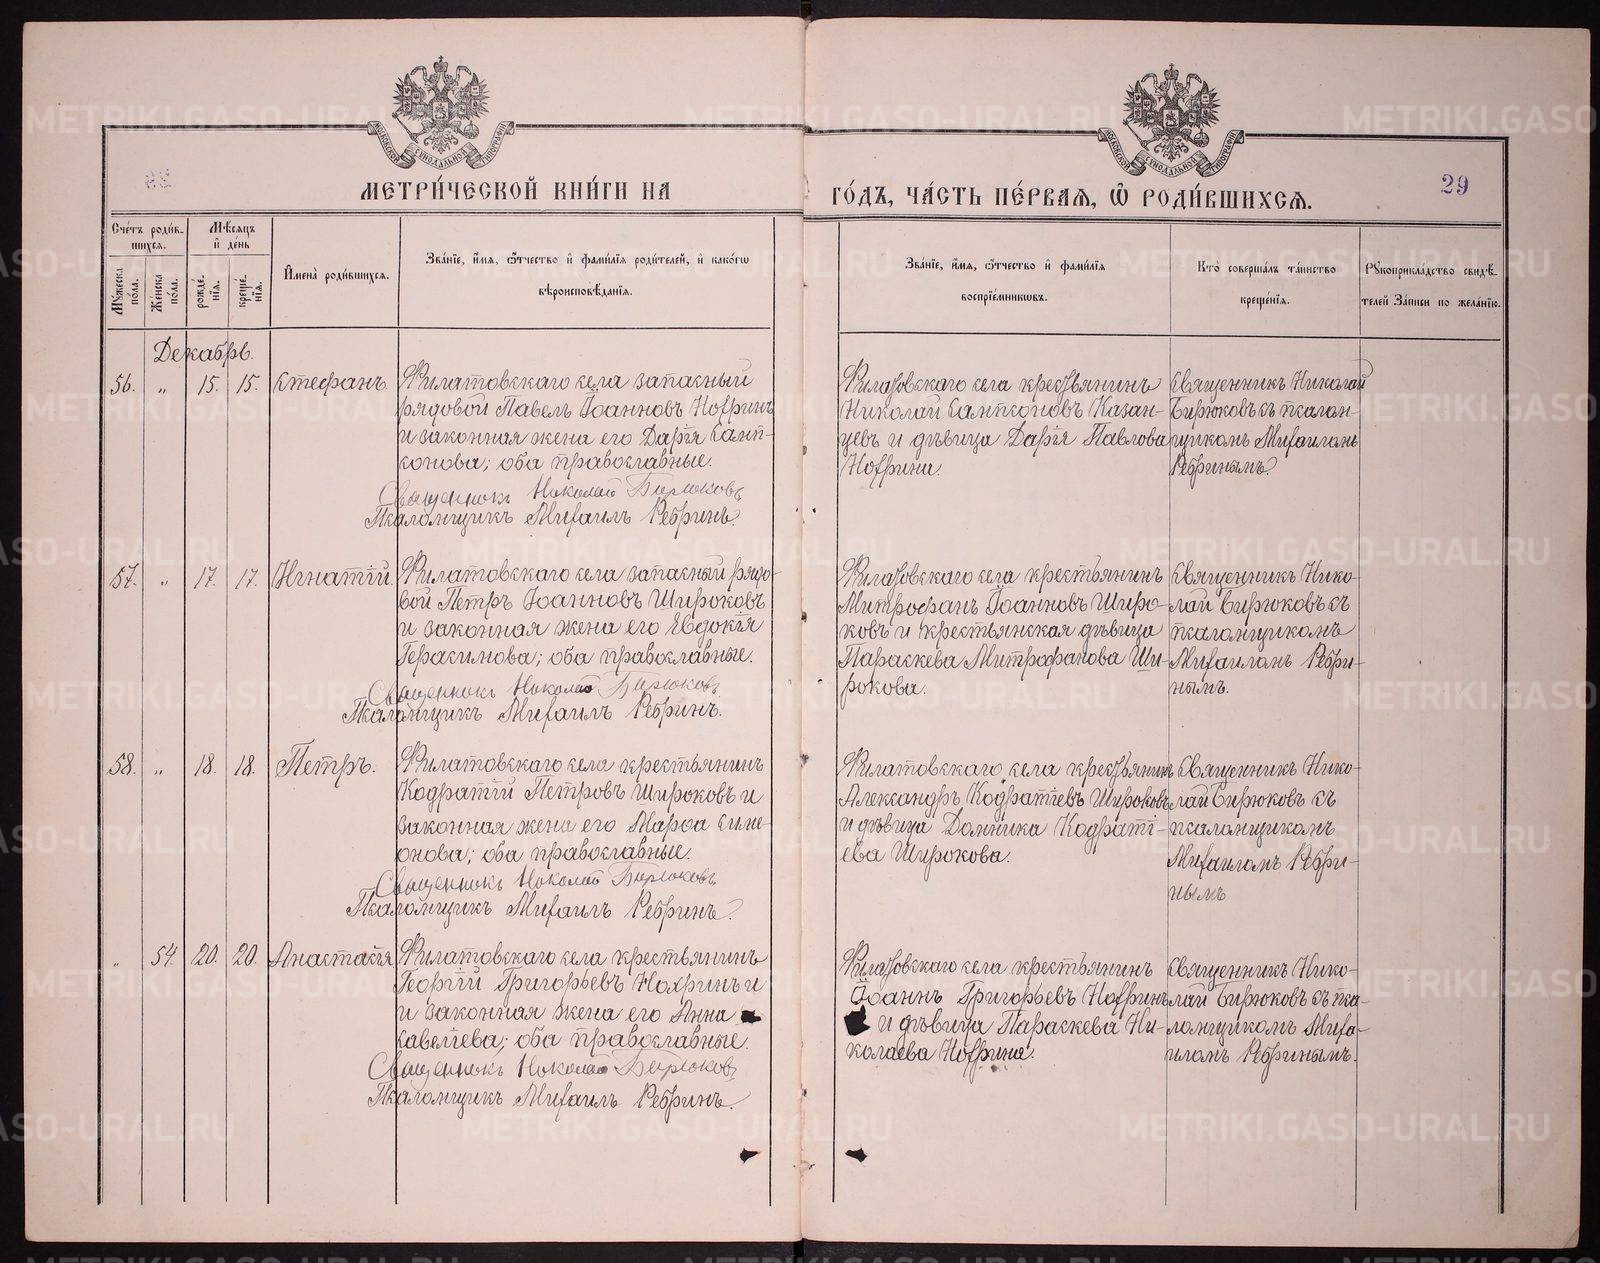 МЕТРИ́ЧЕСКОЙ КНИ́ГИ НА
ГО́ДЪ, ЧА́СТЬ ПЕ́РВАѦ, Ѿ РОДИ́ВШИХСѦ.
29
Сче́тъ роди́в-
шихсѧ.
Мѣ́сѧцъ
и҆ де́нь
Мꙋ́жеска
по́ла.
Же́нска
по́ла.
рожде́-
нїѧ.
креще́-
нїѧ.
И҆мена̀ роди́вшихсѧ.
Зва́нїе, и҆́мѧ, ѻ҆́тчество и҆ фами́лїѧ роди́телей, и҆ како́гѡ
вѣроисповѣ́данїѧ.
Зва́нїе, и҆́мѧ, ѻ҆́тчество и҆ фами́лїѧ
воспрїе́мникѡвъ.
Кто̀ соверша́лъ та́инство
креще́нїѧ.
Рꙋкоприкла́дство свидѣ́-
телей За́писи по жела́нїю.
Декабрь.
56. " 15. 15. Стефанъ.
Филатовскаго села запасный
рядовой Павелъ Іоанновъ Нохринъ
и законная жена его Дарія Самп-
сонова; оба православные.
Священникъ Николай Бирюковъ
Псаломщикъ Михаилъ Ребринъ.
Филатовскаго села крестьянинъ
Николай Сампсоновъ Казан-
цевъ и дѣвица Дарія Павлова
Нохрина.
Священникъ Николай
Бирюковъ съ псалом-
щикомъ Михаиломъ
Ребринымъ.
57. " 17. 17. Игнатій.
Филатовскаго села запасный рядо-
вой Петръ Іоанновъ Широковъ
и законная жена его Евдокія
Герасимова; оба православные.
Священникъ Николай Бирюковъ
Псаломщикъ Михаилъ Ребринъ.
Филатовскаго села крестьянинъ
Митрофанъ Іоанновъ Широ-
ковъ и крестьянская дѣвица
Параскева Митрофанова Ши-
рокова.
Священникъ Нико-
лай Бирюковъ съ
псаломщикомъ
Михаиломъ Ребри-
нымъ.
58. " 18. 18. Петръ.
Филатовскаго села крестьянинъ
Кодратій Петровъ Широковъ и
законная жена его Марѳа Симе-
онова; оба православные.
Священникъ Николай Бирюковъ
Псаломщикъ Михаилъ Ребринъ.
Филатовскаго села крестьянинъ
Александръ Кодратіевъ Широковъ
и дѣвица Домника Кодраті-
ева Широкова.
Священникъ Нико-
лай Бирюковъ съ
псаломщикомъ
Михаиломъ Ребри-
нымъ
" 54. 20. 20. Анастасія
Филатовскаго села крестьянинъ
Георгій Григорьевъ Нохринъ и
и законная жена его Анна
Савеліева; оба православные.
Священникъ Николай Бирюковъ
Псаломщикъ Михаилъ Ребринъ.
Филатовскаго села крестьянинъ
Іоаннъ Григорьевъ Нохринъ
и дѣвица Параскева Ни-
колаева Нохрина.
Священникъ Нико-
лай Бирюковъ съ пса-
ломщикомъ Миха-
иломъ Ребринымъ.